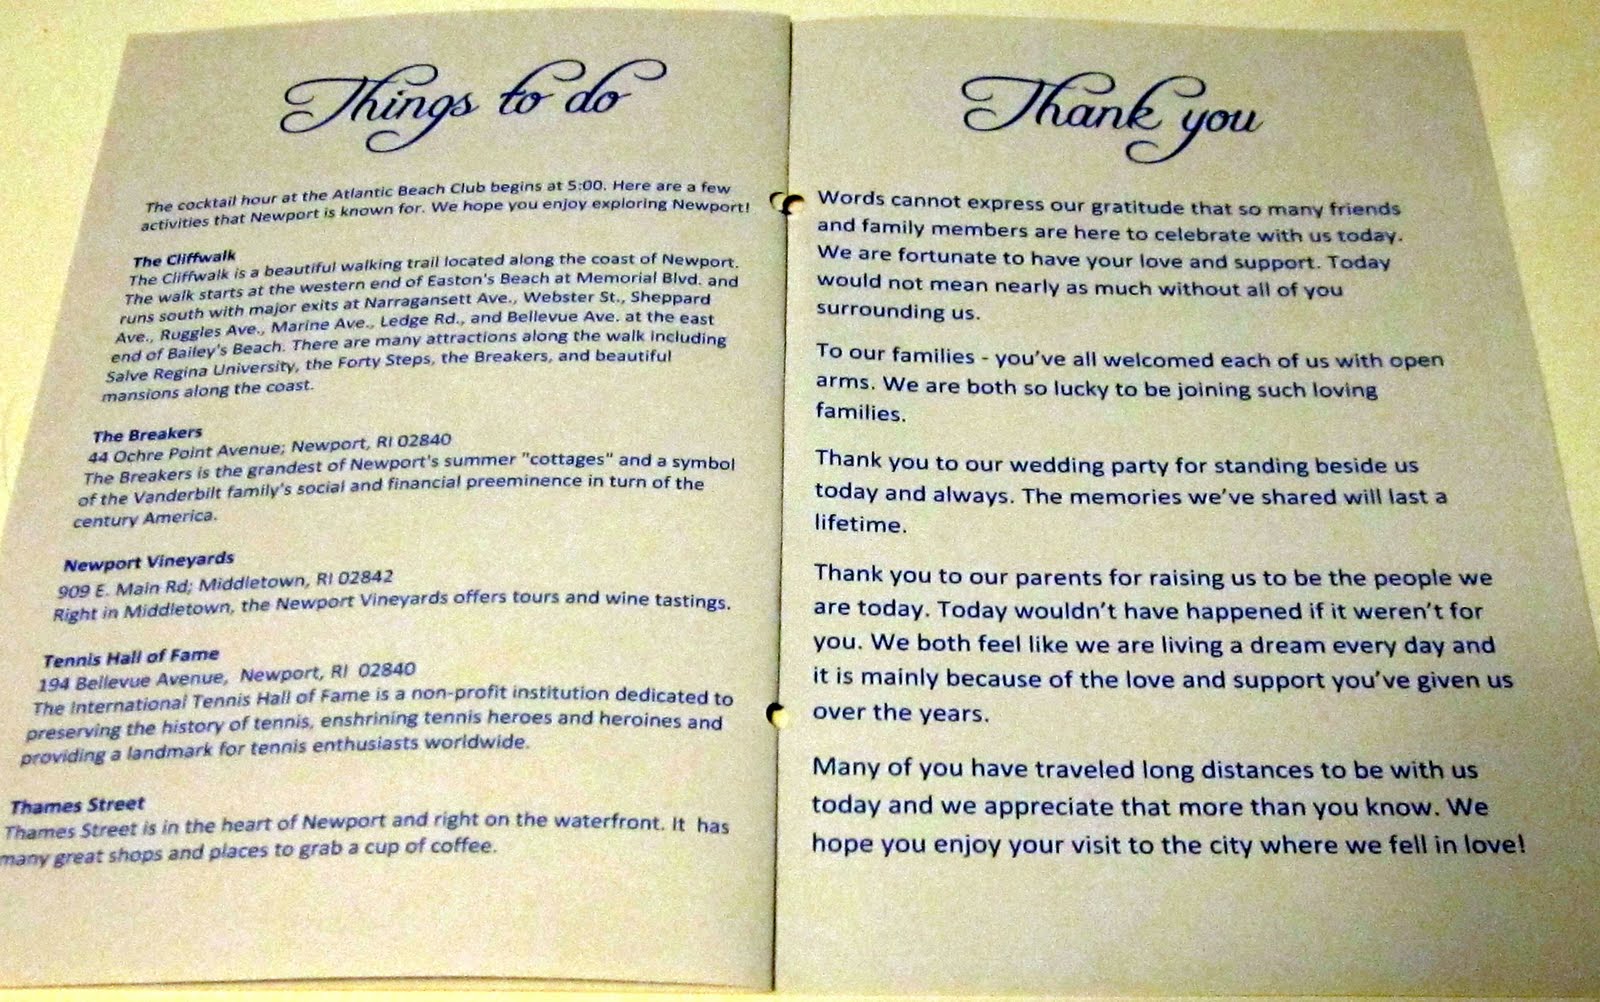 Things to do
The cocktail hour at the Atlantic Beach Club begins at 5:00. Here are a few
activities that Newport is known for. We hope you enjoy exploring Newport!
The Cliffwalk
The Cliffwalk is a beautiful walking trail located along the coast of Newport.
The walk starts at the western end of Easton's Beach at Memorial Blvd. and
runs south with major exits at Narragansett Ave., Webster St., Sheppard
Ave., Ruggles Ave., Marine Ave., Ledge Rd., and Bellevue Ave. at the east
end of Bailey's Beach. There are many attractions along the walk including
Salve Regina University, the Forty Steps, the Breakers, and beautiful
mansions along the coast.
The Breakers
44 Ochre Point Avenue; Newport, RI 02840
The Breakers is the grandest of Newport's summer "cottages" and a symbol
of the Vanderbilt family's social and financial preeminence in turn of the
century America.
Newport Vineyards
909 E. Main Rd; Middletown, RI 02842
Right in Middletown, the Newport Vineyards offers tours and wine tastings.
Tennis Hall of Fame
194 Bellevue Avenue, Newport, RI 02840
The International Tennis Hall of Fame is a non-profit institution dedicated to
preserving the history of tennis, enshrining tennis heroes and heroines and
providing a landmark for tennis enthusiasts worldwide.
Thames Street
Thames Street is in the heart of Newport and right on the waterfront. It has
many great shops and places to grab a cup of coffee.
Thank you
Words cannot express our gratitude that so many friends
and family members are here to celebrate with us today.
We are fortunate to have your love and support. Today
would not mean nearly as much without all of you
surrounding us.
To our families - you've all welcomed each of us with open
arms. We are both so lucky to be joining such loving
families.
Thank you to our wedding party for standing beside us
today and always. The memories we've shared will last a
lifetime.
Thank you to our parents for raising us to be the people we
are today. Today wouldn't have happened if it weren't for
you. We both feel like we are living a dream every day and
it is mainly because of the love and support you've given us
over the years.
Many of you have traveled long distances to be with us
today and we appreciate that more than you know. We
hope you enjoy your visit to the city where we fell in love!